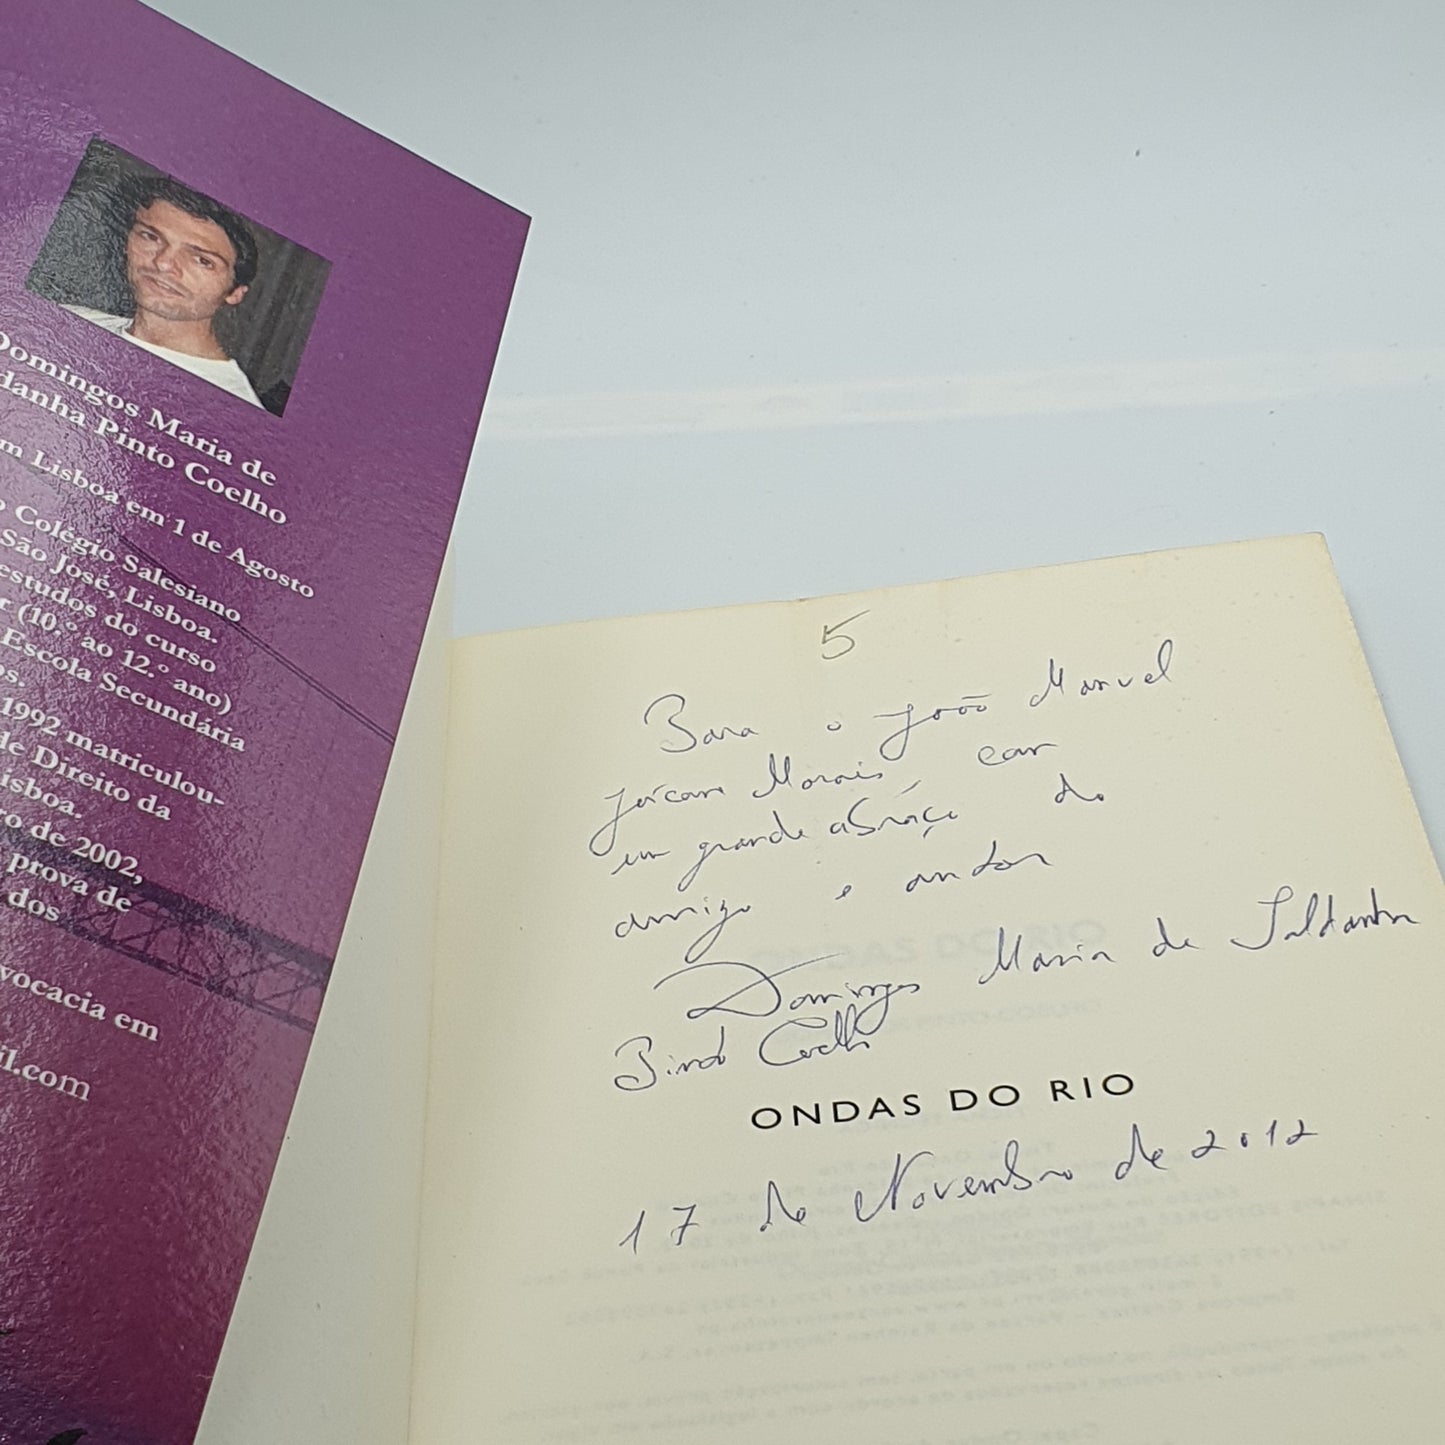 Domingos Maria de
danha Pinto Coelho
m Lisboa em 1 de Agosto
o Colégio Salesiano
São José, Lisboa.
estudos do curso
r (10.º ao 12.º ano)
Escola Secundária
os.
1992 matriculou-
de Direito da
isboa.
ro de 2002,
prova de
dos
vocacia em
il.com
5
Para o João Manuel
Morais, com
um grande abraço do
amigo e autor
Domingos Maria de Saldanha
Pinto Coelho
ONDAS DO RIO
17 de Novembro de 2012